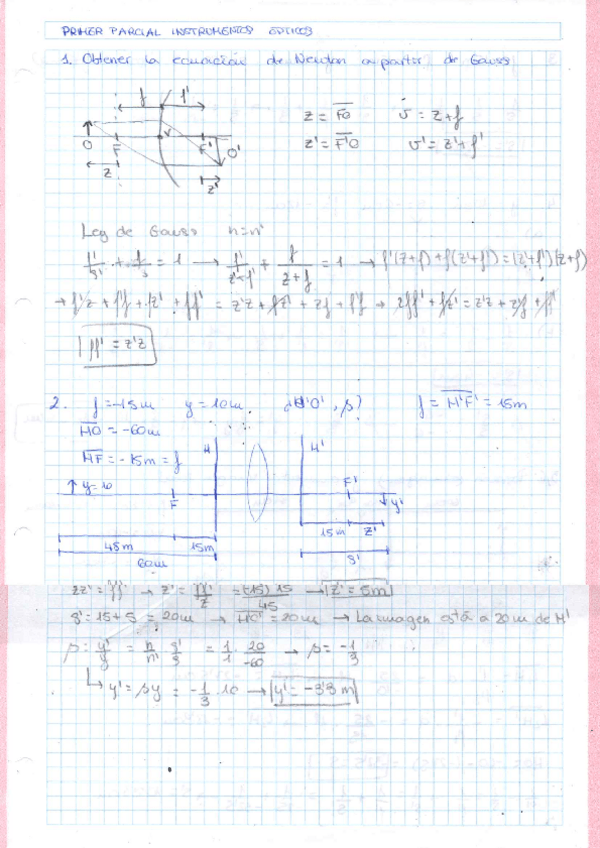 PRIMER PARCIAL INSTRUMENTOS OPTICOS
1. Obtener la ecuación de Newton a partir de Gauss
f f'
z = FO s = z+f
z' = F'O' s' = z'+f'
O F V F' O'
z z'
Ley de Gauss n=n'
f'/s' + f/s = 1 → f'/(z'+f') + f/(z+f) = 1 → f'(z+f) + f(z'+f') = (z'+f')(z+f)
→ f'z + f'f + fz' + ff' = z'z + fz' + zf' + f'f → 2ff' + fz' = z'z + z'f + ff'
ff' = z'z
2. f = -15m y = 10m ¿H'O', β? f = H'F' = 15m
HO = -60m
HF = -15m = f
H H'
y=10 F F' y'
45m 15m 15m z'
60m s'
zz' = ff' → z' = ff'/z = (-15)·15/-45 → z' = 5m
s' = 15+5 = 20m → H'O' = 20m → La imagen está a 20m de H'
β = y'/y = n/n' s'/s = 1/1 · 20/-60 → β = -1/3
y' = βy = -1/3 · 10 → y' = -3'3 m